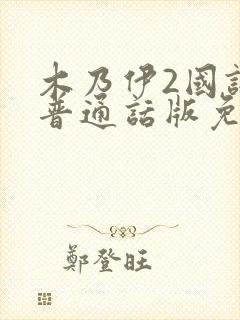 木乃伊2國
普通話版免
鄭登旺